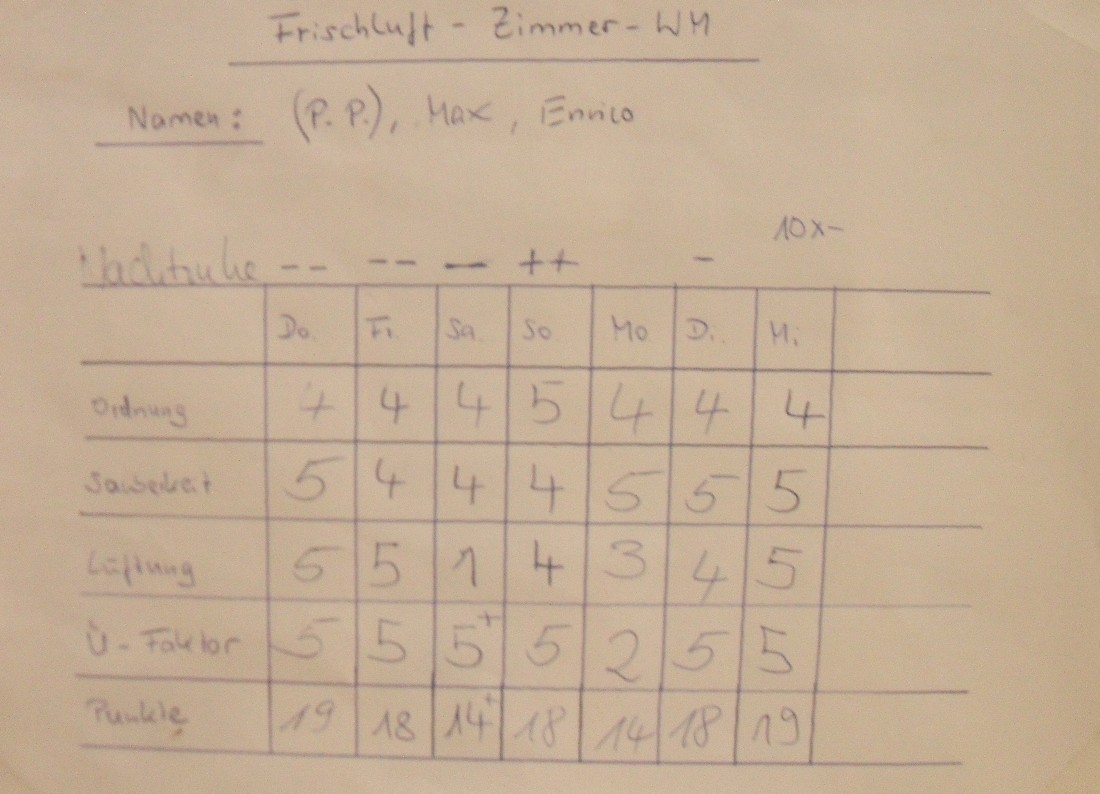 Frischluft - Zimmer-WM
Namen: (P. P.), Max, Enrico
10x-
Nachtruhe -- -- — ++ -
Do. Fr. Sa. So Mo Di. Mi
Ordnung 4 4 4 5 4 4 4
Sauberkeit 5 4 4 4 5 5 5
Lüftung 5 5 1 4 3 4 5
Ü-Faktor 5 5 5+ 5 2 5 5
Punkte 19 18 14+ 18 14 18 19